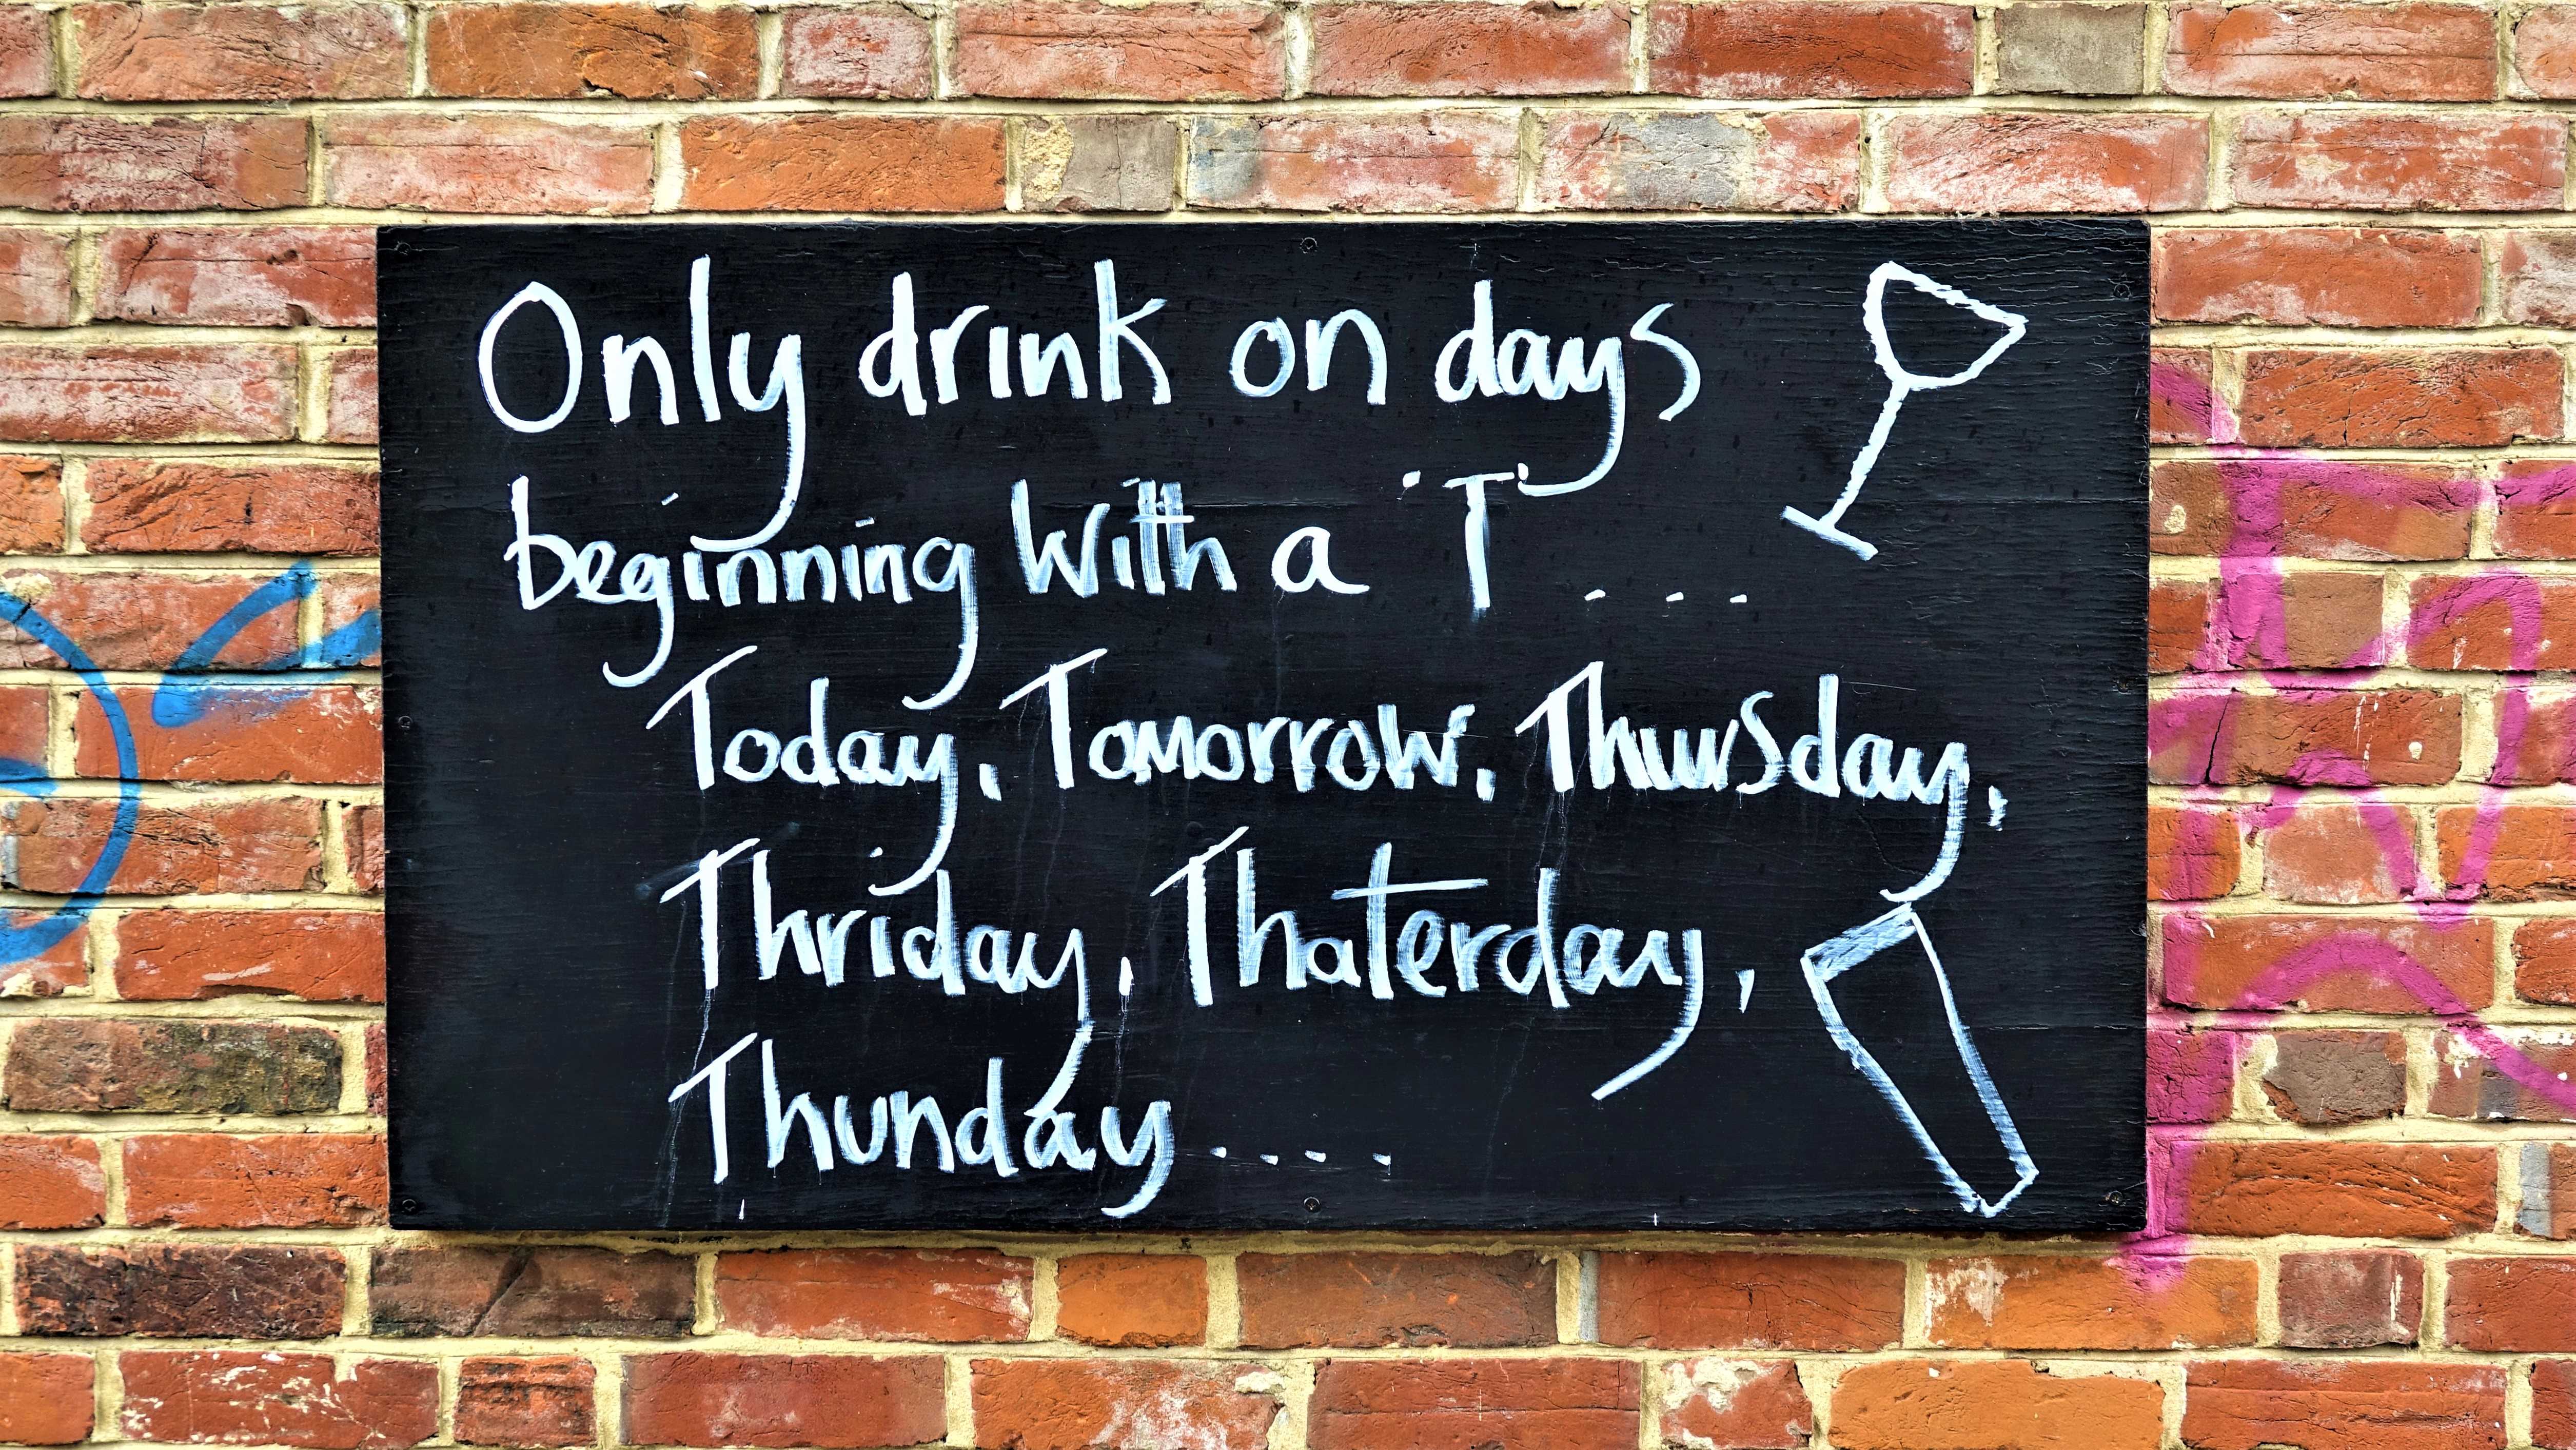 Only drink on days
beginning with a 'T' ...
Today, Tomorrow, Thursday,
Thriday, Thaterday,
Thunday ....